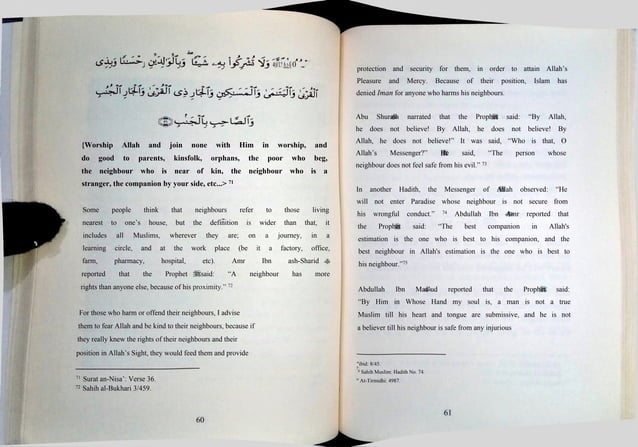 وَلَا تُشْرِكُوا۟ بِهِۦ شَيْـًٔا ۖ وَبِٱلْوَٰلِدَيْنِ إِحْسَـٰنًا وَبِذِى
ٱلْقُرْبَىٰ وَٱلْيَتَـٰمَىٰ وَٱلْمَسَـٰكِينِ وَٱلْجَارِ ذِى ٱلْقُرْبَىٰ وَٱلْجَارِ ٱلْجُنُبِ
وَٱلصَّاحِبِ بِٱلْجَنۢبِ
[Worship Allah and join none with Him in worship, and
do good to parents, kinsfolk, orphans, the poor who beg,
the neighbour who is near of kin, the neighbour who is a
stranger, the companion by your side, etc...> 71
Some people think that neighbours refer to those living
nearest to one's house, but the definition is wider than that, it
includes all Muslims, wherever they are; on a journey, in a
learning circle, and at the work place (be it a factory, office,
farm, pharmacy, hospital, etc). Amr Ibn ash-Sharid
reported that the Prophet said: "A neighbour has more
rights than anyone else, because of his proximity." 72
For those who harm or offend their neighbours, I advise
them to fear Allah and be kind to their neighbours, because if
they really knew the rights of their neighbours and their
position in Allah's Sight, they would feed them and provide
71 Surat an-Nisa': Verse 36.
72 Sahih al-Bukhari 3/459.
60
protection and security for them, in order to attain Allah's
Pleasure and Mercy. Because of their position, Islam has
denied Iman for anyone who harms his neighbours.
Abu narrated that the said: "By Allah,
he does not believe! By Allah, he does not believe! By
Allah, he does not believe!" It was said, "Who is that, O
Allah's Messenger?" said, "The person whose
neighbour does not feel safe from his evil." 73
In another Hadith, the Messenger of observed: "He
will not enter Paradise whose neighbour is not secure from
his wrongful conduct." 74 Abdullah Ibn reported that
the said: "The best companion in Allah's
estimation is the one who is best to his companion, and the
best neighbour in Allah's estimation is the one who is best to
his neighbour."75
Abdullah Ibn reported that the said:
"By Him in Whose Hand my soul is, a man is not a true
Muslim till his heart and tongue are submissive, and he is not
a believer till his neighbour is safe from any injurious
ibid: 8/45.
Sahih Muslim: Hadith No. 74.
At-Tirmidhi: 4987.
61